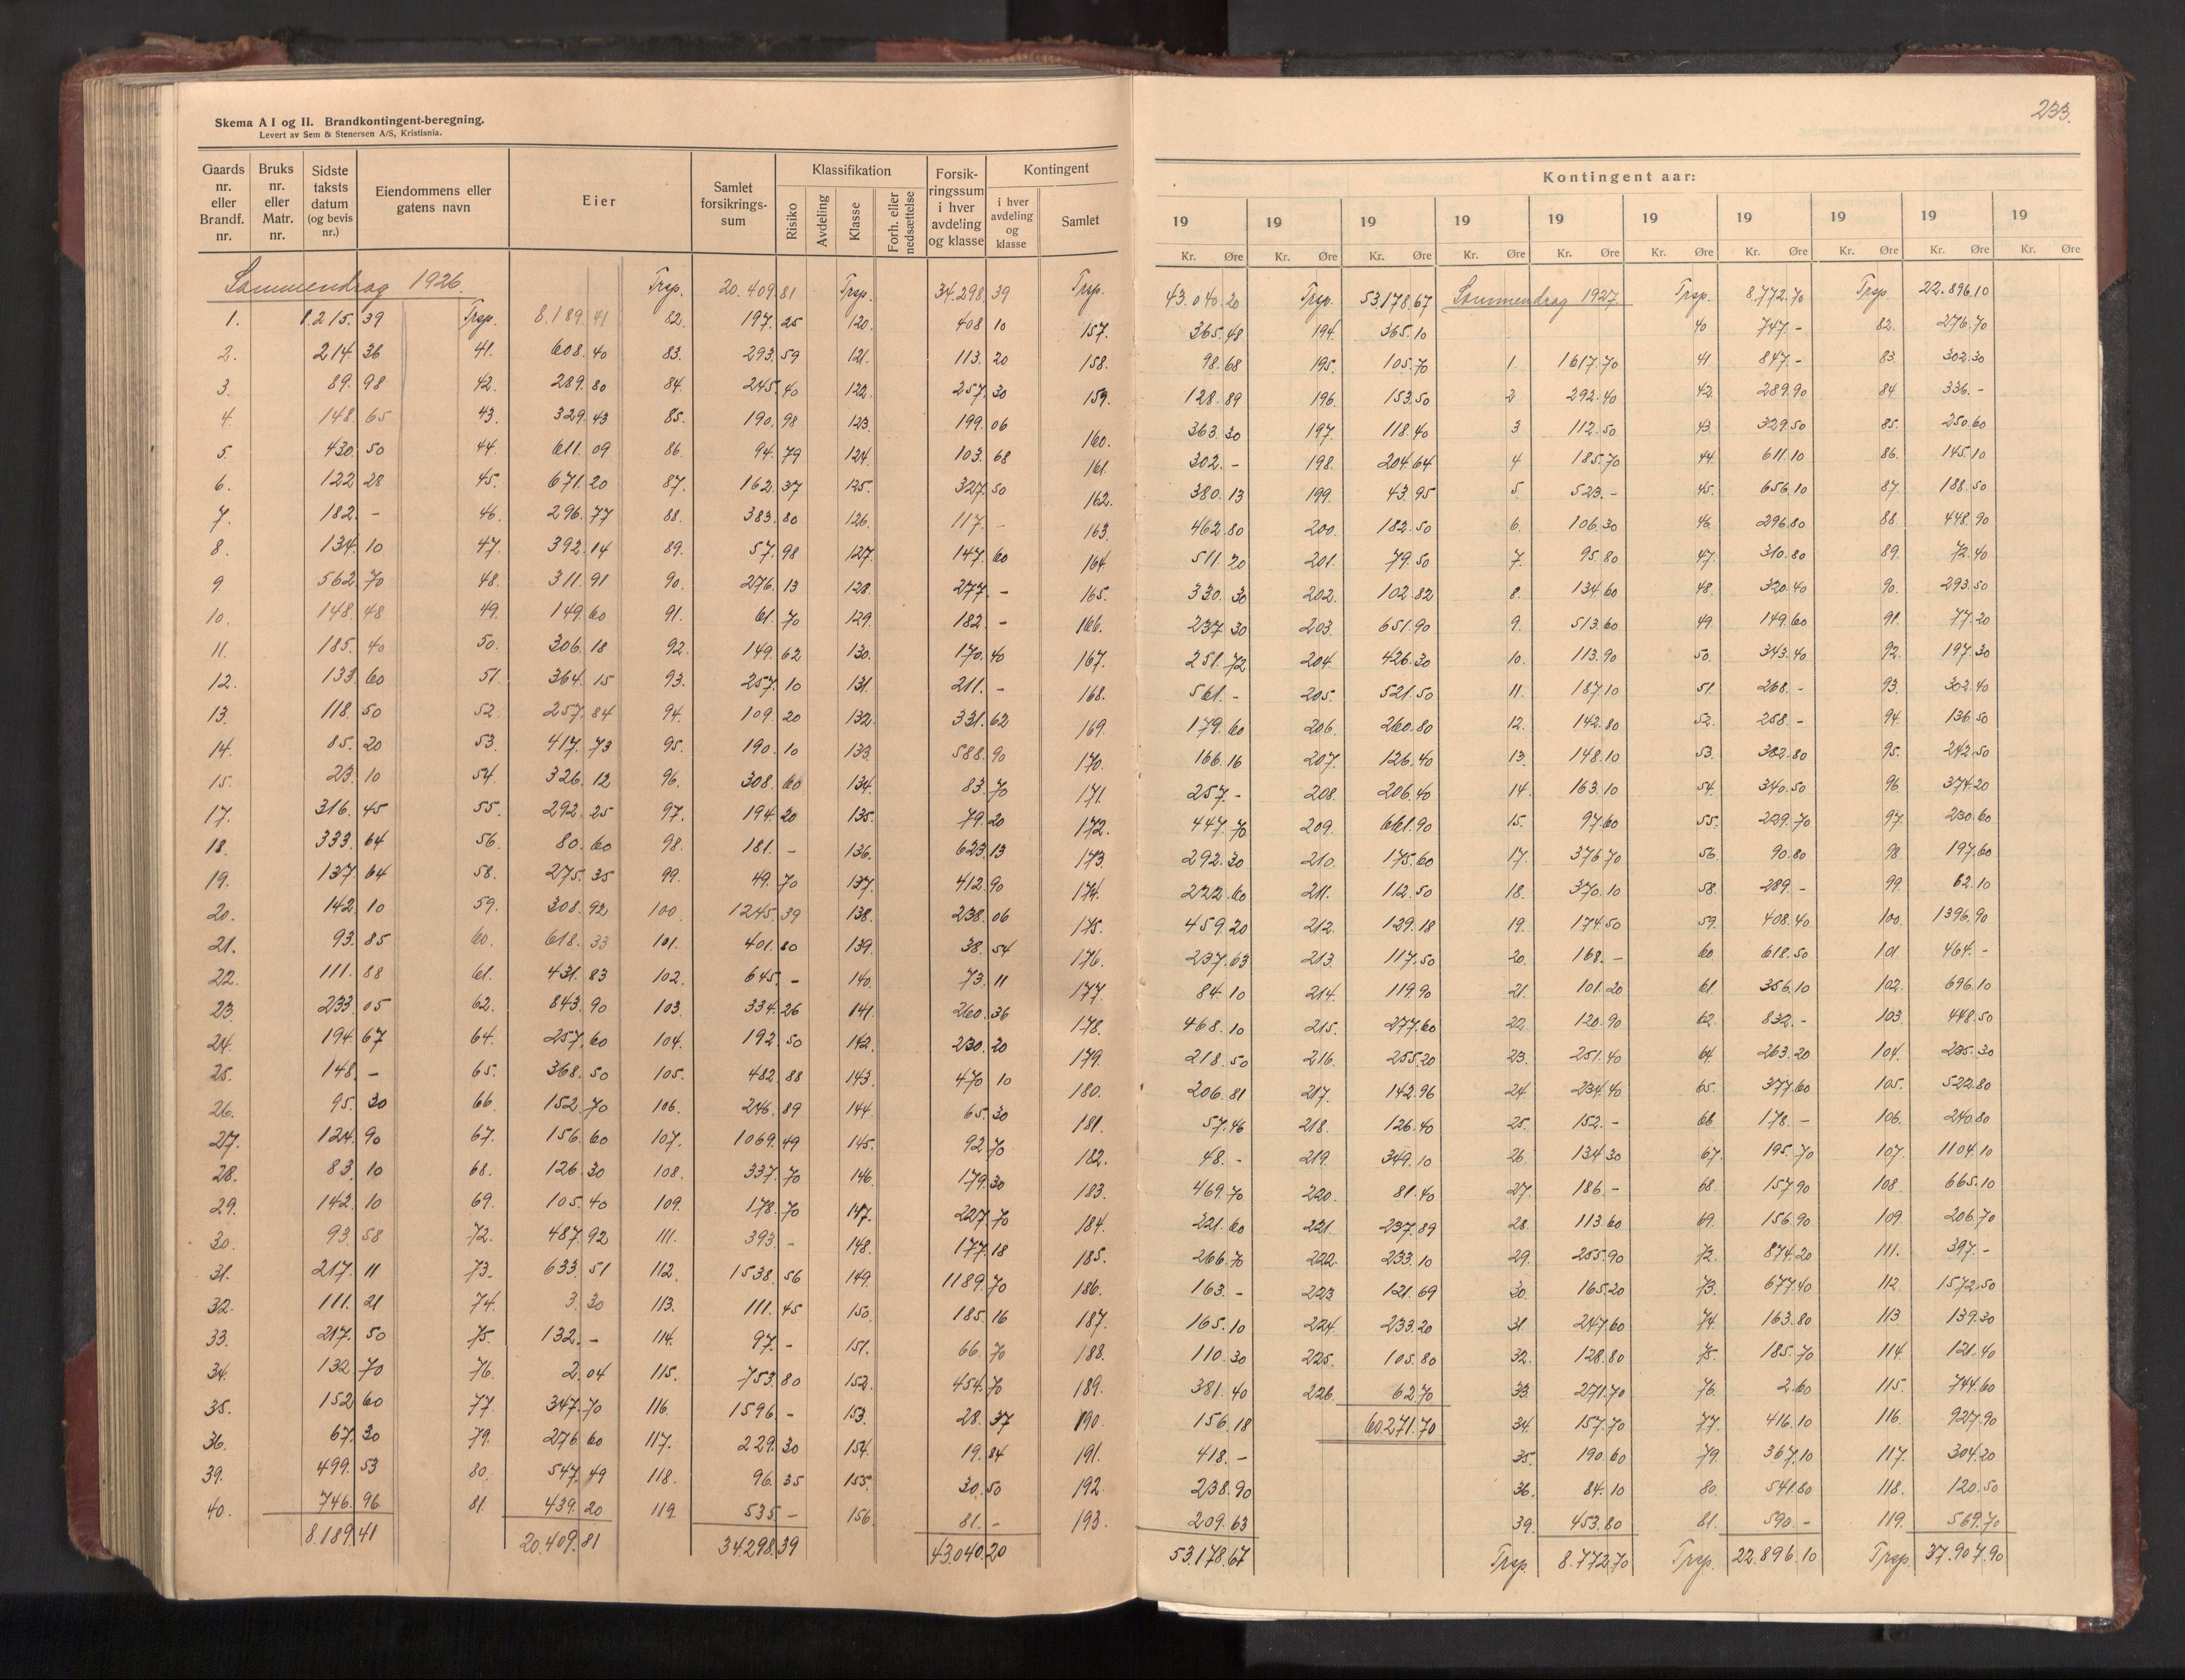 233.
Skema A I og II. Brandkontingent-beregning.
Levert av Sem & Stenersen A/S, Kristiania.
Gaards nr. eller Brandf. nr. | Bruks nr. eller Matr. nr. | Sidste taksts datum (og bevis nr.) | Eiendommens eller gatens navn | Eier | Samlet forsikrings- sum | Klassifikation | Risiko | Avdeling | Klasse | Forh. eller nedsættelse | Forsik- ringssum i hver avdeling og klasse | Kontingent | i hver avdeling og klasse | Samlet
Sammendrag 1926. Trsp. 20.409 81 Trsp. 34.298,39 Trsp.
1. 1.215.39 Trsp. 8.189.41 82. 197.25 120. 408 10 157.
2. 214.36 41. 608.40 83. 293.59 121. 113.20 158.
3. 89.98 42. 289.80 84. 245.40 122. 257.30 159.
4. 148.65 43. 329.43 85. 190.98 123. 199.06 160.
5. 430.50 44. 611.09 86. 94.79 124. 103.68 161.
6. 122.28 45. 671.20 87. 162.37 125. 327.50 162.
7. 182.- 46. 296.77 88. 383.80 126. 117.- 163.
8. 134.10 47. 392.14 89. 57.98 127. 147.60 164.
9 562.70 48. 311.91 90. 276.13 128. 277.- 165.
10. 148.48 49. 149.60 91. 61.70 129. 182.- 166.
11. 185.40 50. 306.18 92. 149.62 130. 170.40 167.
12. 133.60 51. 364.15 93. 257.10 131. 211.- 168.
13. 118.50 52. 257.84 94. 109.20 132. 331.62 169.
14. 85.20 53. 417.73 95. 190.10 133. 588.90 170.
15. 23.10 54. 326.12 96. 308.60 134. 83.70 171.
17. 316.45 55. 292.25 97. 194.20 135. 79.20 172.
18. 333.64 56. 80.60 98. 181.- 136. 623.13 173.
19. 137.64 58. 275.35 99. 49.70 137. 412.90 174.
20. 142.10 59. 308.92 100. 1245.39 138. 238.06 175.
21. 93.85 60. 618.33 101. 401.80 139. 38.54 176.
22. 111.88 61. 431.83 102. 645.- 140. 73.11 177.
23. 233.05 62. 843.90 103. 334.26 141. 260.36 178.
24. 194.67 64. 257.60 104. 192.50 142. 230.20 179.
25. 148.- 65. 368.50 105. 482.88 143. 470.10 180.
26. 95.30 66. 152.70 106. 246.89 144. 65.30 181.
27. 124.90 67. 156.60 107. 1069.49 145. 92.70 182.
28. 83.10 68. 126.30 108. 337.70 146. 179.30 183.
29. 142.10 69. 105.40 109. 178.70 147. 227.70 184.
30. 93.58 72. 487.92 111. 393.- 148. 177.18 185.
31. 217.11 73. 633.51 112. 1538.56 149. 1189.70 186.
32. 111.21 74. 3.30 113. 111.45 150. 185.16 187.
33. 217.50 75. 132.- 114. 97.- 151. 66.70 188.
34. 132.70 76. 2.04 115. 753.80 152. 454.70 189.
35. 152.60 77. 347.70 116. 1596.- 153. 28.37 190.
36. 67.30 79. 276.60 117. 229.30 154. 19.84 191.
39. 499.53 80. 547.49 118. 96.35 155. 30.50 192.
40. 746.96 81. 439.20 119. 535.- 156. 81.- 193.
8.189.41 20.409.81 34.298.39 43.040.20
Kontingent aar:
19 19 19 19 19 19 19 19 19 19
Kr. Øre Kr. Øre Kr. Øre Kr. Øre Kr. Øre Kr. Øre Kr. Øre Kr. Øre Kr. Øre Kr. Øre
43.040.20 Trsp. 53178.67 Sammendrag 1927 Trsp. 8.772.70 Trsp. 22.896.10
365.48 194. 365.10 40 747.- 82. 276.70
98.68 195. 105.70 1. 1617.70 41. 847.- 83. 302.30
128.89 196. 153.50 2 292.40 42. 289.90 84 336.-
363.30 197. 118.40 3 112.50 43. 329.50 85. 250.60
302.- 198. 204.64 4 185.70 44. 611.10 86. 145.10
380.13 199. 43.95 5. 523.- 45. 656.10 87. 188.50
462.80 200. 182.50 6. 106.30 46. 296.80 88. 448.90
511.20 201. 79.50 7. 95.80 47. 310.80 89. 72.40
330.30 202. 102.82 8. 134.60 48. 320.40 90. 293.50
237.30 203. 651.90 9. 513.60 49. 149.60 91. 77.20
251.72 204. 426.30 10. 113.90 50. 343.40 92. 197.30
561.- 205. 521.50 11. 187.10 51. 268.- 93. 302.40
179.60 206. 260.80 12. 142.80 52. 258.- 94. 136.50
166.16 207. 126.40 13. 148.10 53. 382.80 95. 242.50
257.- 208. 206.40 14. 163.10 54. 340.50 96 374.20
447.70 209. 661.90 15. 97.60 55. 229.70 97. 230.60
292.30 210. 175.60 17. 376.70 56. 90.80 98. 197.60
222.60 211. 112.50 18. 370.10 58. 289.- 99. 62.10
459.20 212. 129.18 19. 174.50 59. 408.40 100. 1396.90
237.63 213. 117.50 20. 168.- 60 618.50 101 464.-
84.10 214. 119.90 21. 101.20 61. 356.10 102. 696.10
468.10 215. 277.60 22. 120.90 62. 832.- 103. 448.50
218.50 216. 255.20 23. 251.40 64. 263.20 104. 235.30
206.81 217. 142.96 24. 234.40 65. 377.60 105. 522.80
57.46 218. 126.40 25. 152.- 66 178.- 106. 240.80
48.- 219. 349.10 26. 134.30 67. 195.70 107. 1104.10
469.70 220. 81.40 27. 186.- 68. 157.90 108. 665.10
221.60 221. 237.89 28. 113.60 69. 156.90 109. 206.70
266.70 222. 233.10 29. 255.90 72. 874.20 111. 397.-
163.- 223 121.69 30. 165.20 73. 677.40 112 1572.50
165.10 224. 233.20 31. 247.60 74. 163.80 113 139.30
110.30 225. 105.80 32. 128.80 75. 185.70 114. 121.40
381.40 226. 62.70 33. 271.70 76. 2.60 115. 744.60
156.18 60.271.70 34. 157.70 77. 416.10 116. 927.90
418.- 35. 190.60 79. 367.10 117. 304.20
238.90 36. 84.10 80. 541.80 118. 120.50
209.63 39. 453.80 81. 590.- 119. 569.70
53.178.67 Trsp. 8.772.70 Trsp. 22.896.10 Trsp. 37.907.90